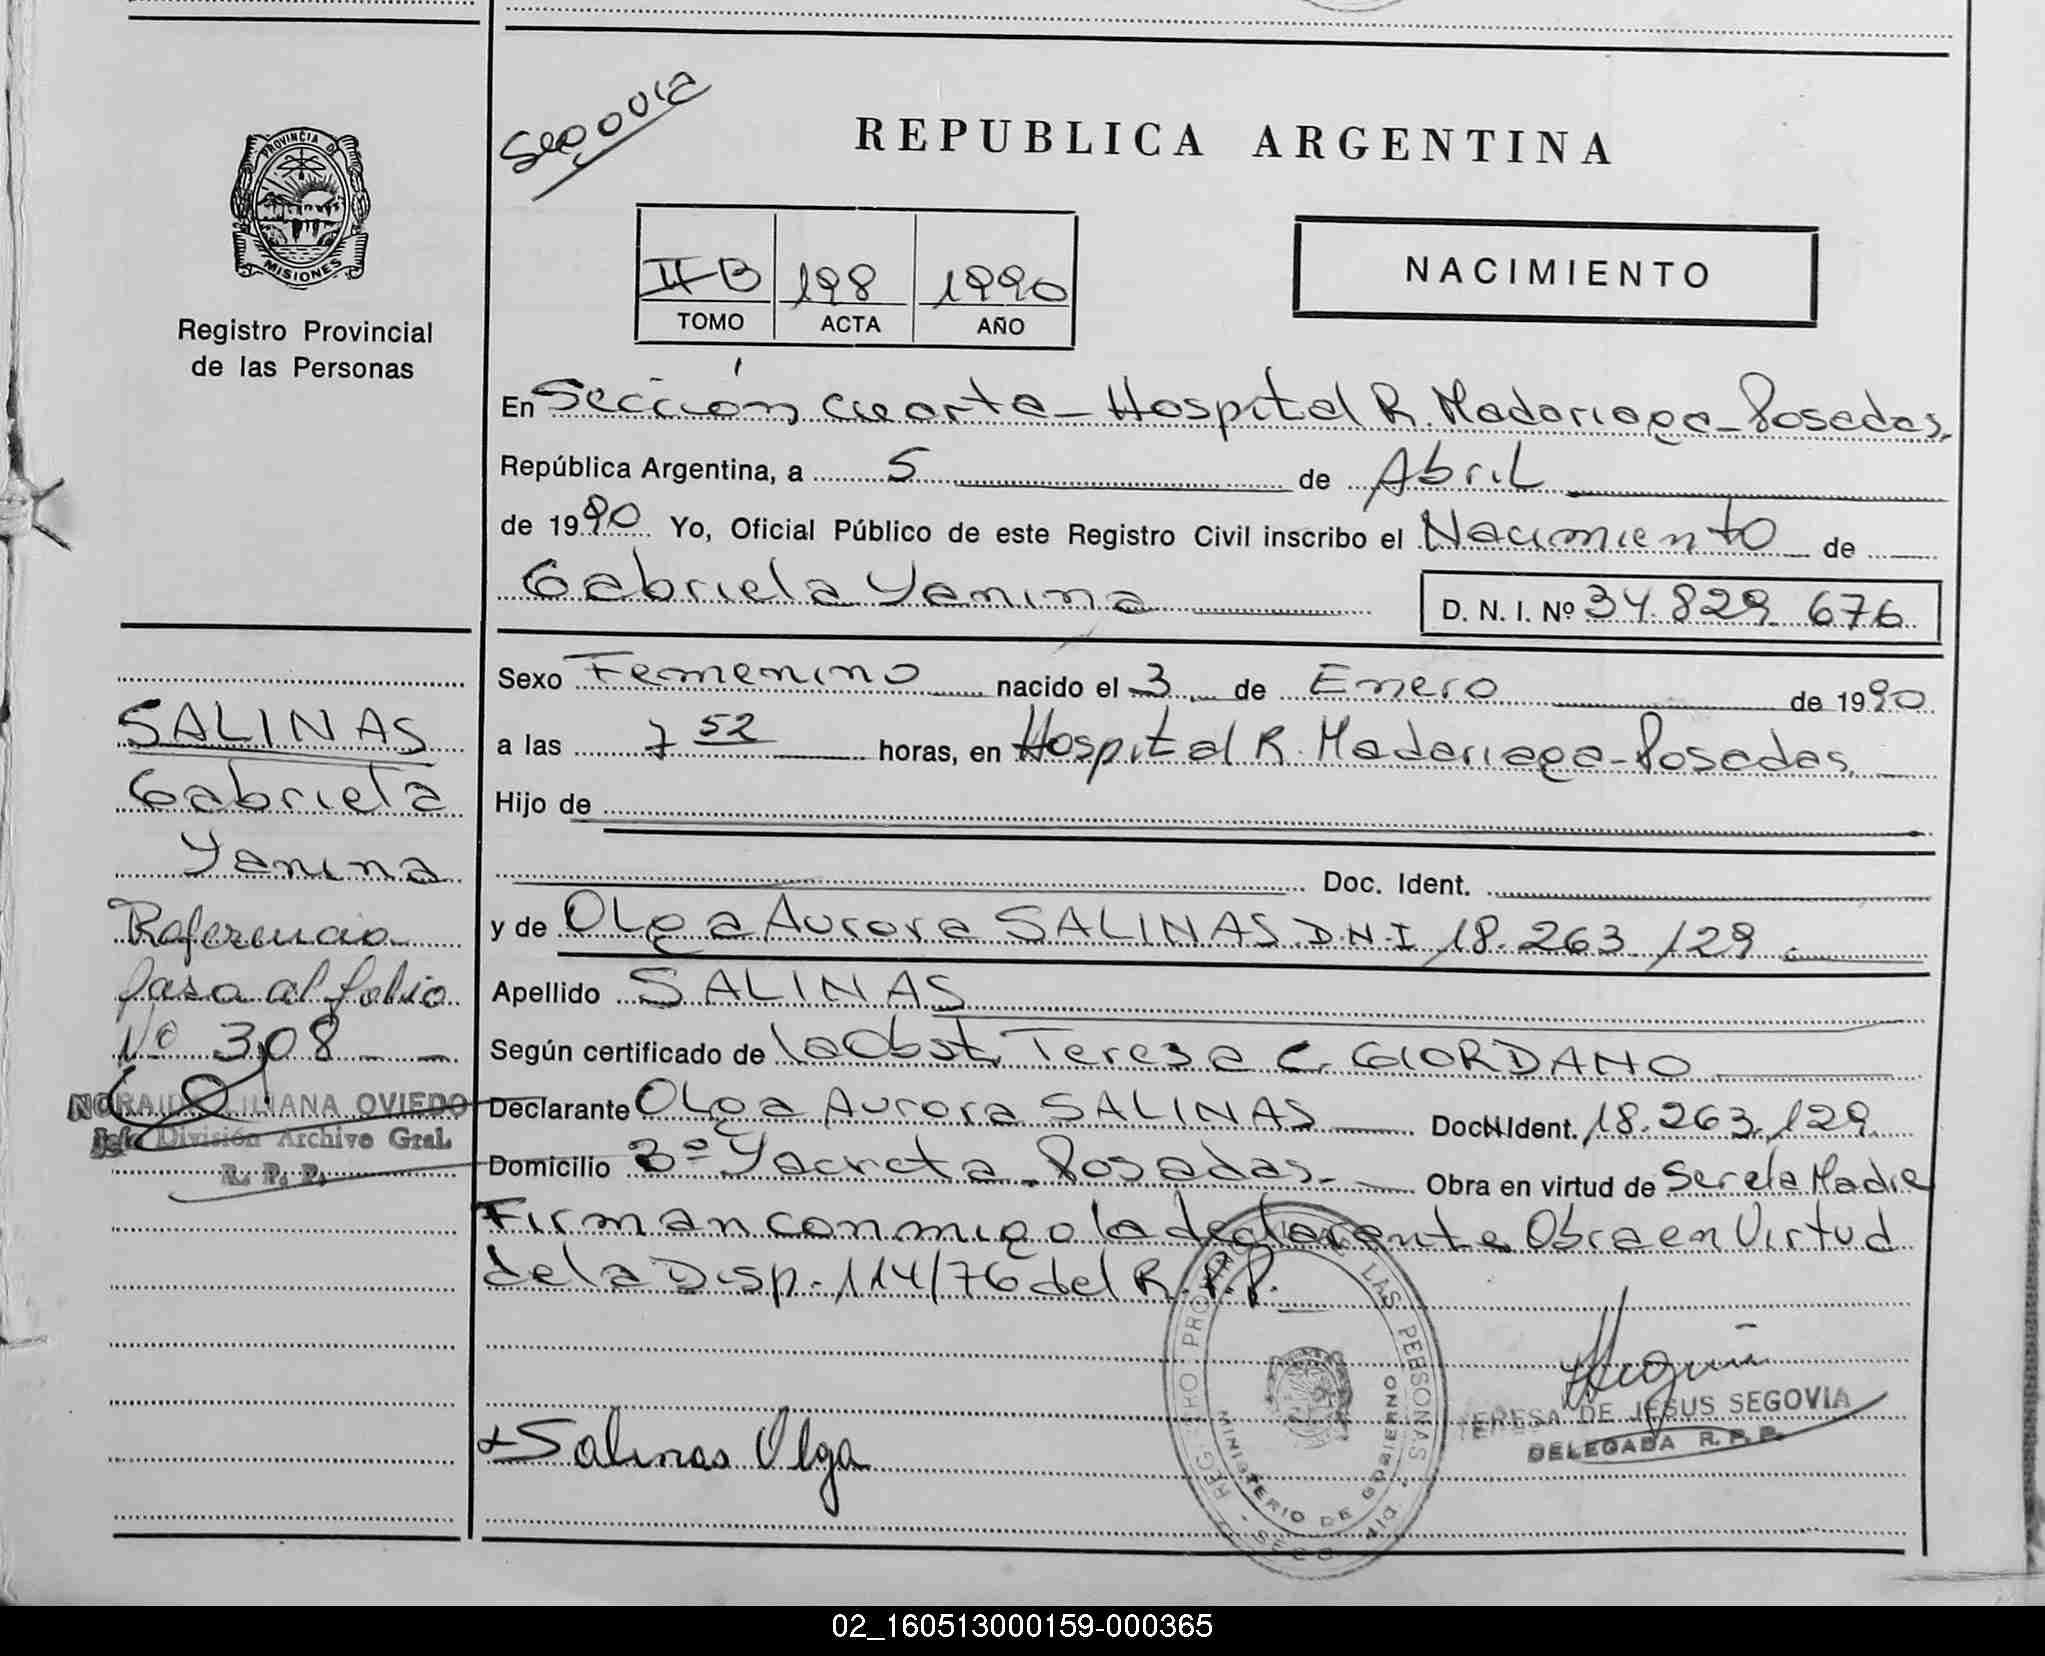 Segovia
REPUBLICA ARGENTINA
PROVINCIA DE
MISIONES
Registro Provincial
de las Personas
II B 198 1990
TOMO ACTA AÑO
NACIMIENTO
En Sección Cuarta - Hospital R. Madariaga - Posadas.
República Argentina, a 5 de Abril
de 1990 Yo, Oficial Público de este Registro Civil inscribo el Nacimiento de
Gabriela Yanina D. N. I. Nº 34.829 676
Sexo Femenino nacido el 3 de Enero de 1990
a las 7 52 horas, en Hospital R. Madariaga - Posadas.
Hijo de
Doc. Ident.
y de Olga Aurora SALINAS D.N.I 18.263.129.
Apellido SALINAS
Según certificado de la Obst. Teresa C. GIORDANO
Declarante Olga Aurora SALINAS Doc N Ident. 18.263.129.
Domicilio Bº Yacreta - Posadas.- Obra en virtud de Ser ela Madre
Firman conmigo la declarante Obra en Virtud
de la Disp. 114/76 del R.P.P.
SALINAS
Gabriela
Yanina
Referencia
pasa al folio
Nº 308 - -
NORAIDA LILIANA OVIEDO
Jefe División Archivo Gral.
R. P. P.
+ Salinas Olga
REGISTRO PROVINCIAL DE LAS PERSONAS
MINISTERIO DE GOBIERNO
TERESA DE JESUS SEGOVIA
DELEGADA R. P. P.
02_160513000159-000365